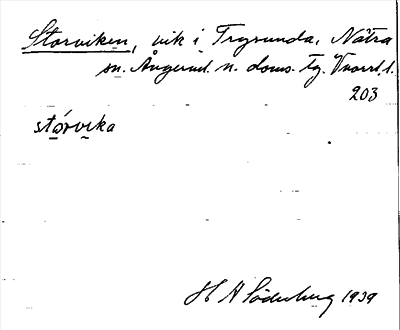 Storviken, vik i Trysunda, Nätra
sn. Ångerml. n. doms. tg. Vnorrl. l.
203
stórvika
H A Söderberg 1939